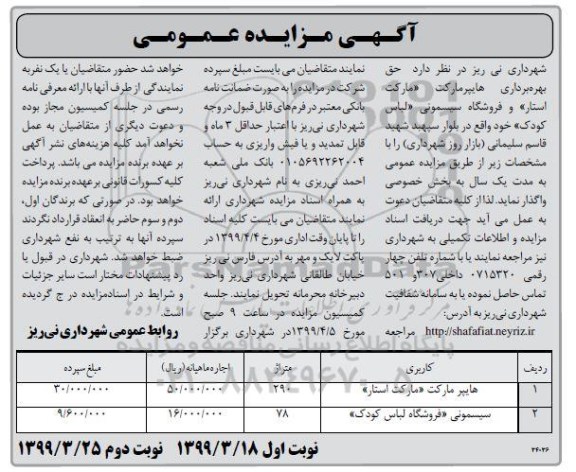 آگـهـی مـزایـده عـمـومـی
شهرداری نی ریز در نظر دارد حق
بهره‌برداری هایپرمارکت «مارکت
استار» و فروشگاه سیسمونی «لباس
کودک» خود واقع در بلوار سپهبد شهید
قاسم سلیمانی (بازار روز شهرداری) را با
مشخصات زیر از طریق مزایده عمومی
به مدت یک سال به بخش خصوصی
واگذار نماید. لذا از کلیه متقاضیان دعوت
به عمل می آید جهت دریافت اسناد
مزایده و اطلاعات تکمیلی به شهرداری
نیز مراجعه نمایند یا با شماره تلفن چهار
رقمی ۰۷۱۵۳۲۰ داخلی ۳۰۷و ۵۰۱
تماس حاصل نموده یا به سامانه شفافیت
شهرداری نی‌ریز به آدرس:
http://shafafiat.neyriz.ir مراجعه
نمایند متقاضیان می بایست مبلغ سپرده
شرکت در مزایده را به صورت ضمانت نامه
بانکی معتبر در فرم‌های قابل قبول در وجه
شهرداری نی‌ریز با اعتبار حداقل ۳ ماه و
قابل تمدید و یا فیش واریزی به حساب
۰۱۰۵۶۹۲۲۶۲۰۰۴ بانک ملی شعبه
احمد نی‌ریزی به نام شهرداری نی‌ریز
به همراه اسناد مزایده شهرداری ارائه
نمایند متقاضیان می بایست کلیه اسناد
را تا پایان وقت اداری مورخ ۱۳۹۹/۴/۴ در
پاکت لاک و مهر به آدرس فارس نی ریز
خیابان طالقانی شهرداری نی‌ریز واحد
دبیرخانه محرمانه تحویل نمایند. جلسه
کمیسیون مزایده در ساعت ۹ صبح
مورخ ۱۳۹۹/۴/۵در شهرداری برگزار
خواهد شد حضور متقاضیان یا یک نفربه
نمایندگی از طرف آنها با ارائه معرفی نامه
رسمی در جلسه کمیسیون مجاز بوده
و دعوت دیگری از متقاضیان به عمل
نخواهد آمد کلیه هزینه‌های نشر آگهی
بر عهده برنده مزایده می باشد. پرداخت
کلیه کسورات قانونی بر عهده برنده مزایده
خواهد بود. در صورتی که برندگان اول،
دوم و سوم حاضر به انعقاد قرارداد نگردند
سپرده آنها به ترتیب به نفع شهرداری
ضبط خواهد شد. شهرداری در قبول یا
رد پیشنهادات مختار است سایر جزئیات
و شرایط در اسنادمزایده در ج گردیده
است.
روابط عمومی شهرداری نی‌ریز
ردیف کاربری متراژ اجاره‌ماهیانه(ریال) مبلغ سپرده
۱ هایپر مارکت «مارکت استار» ۲۹۰ ۵۰/۰۰۰/۰۰۰ ۳۰/۰۰۰/۰۰۰
۲ سیسمونی «فروشگاه لباس کودک» ۷۸ ۱۶/۰۰۰/۰۰۰ ۹/۶۰۰/۰۰۰
نوبت اول ۱۳۹۹/۳/۱۸ نوبت دوم ۱۳۹۹/۳/۲۵
۲۴۰۲۶